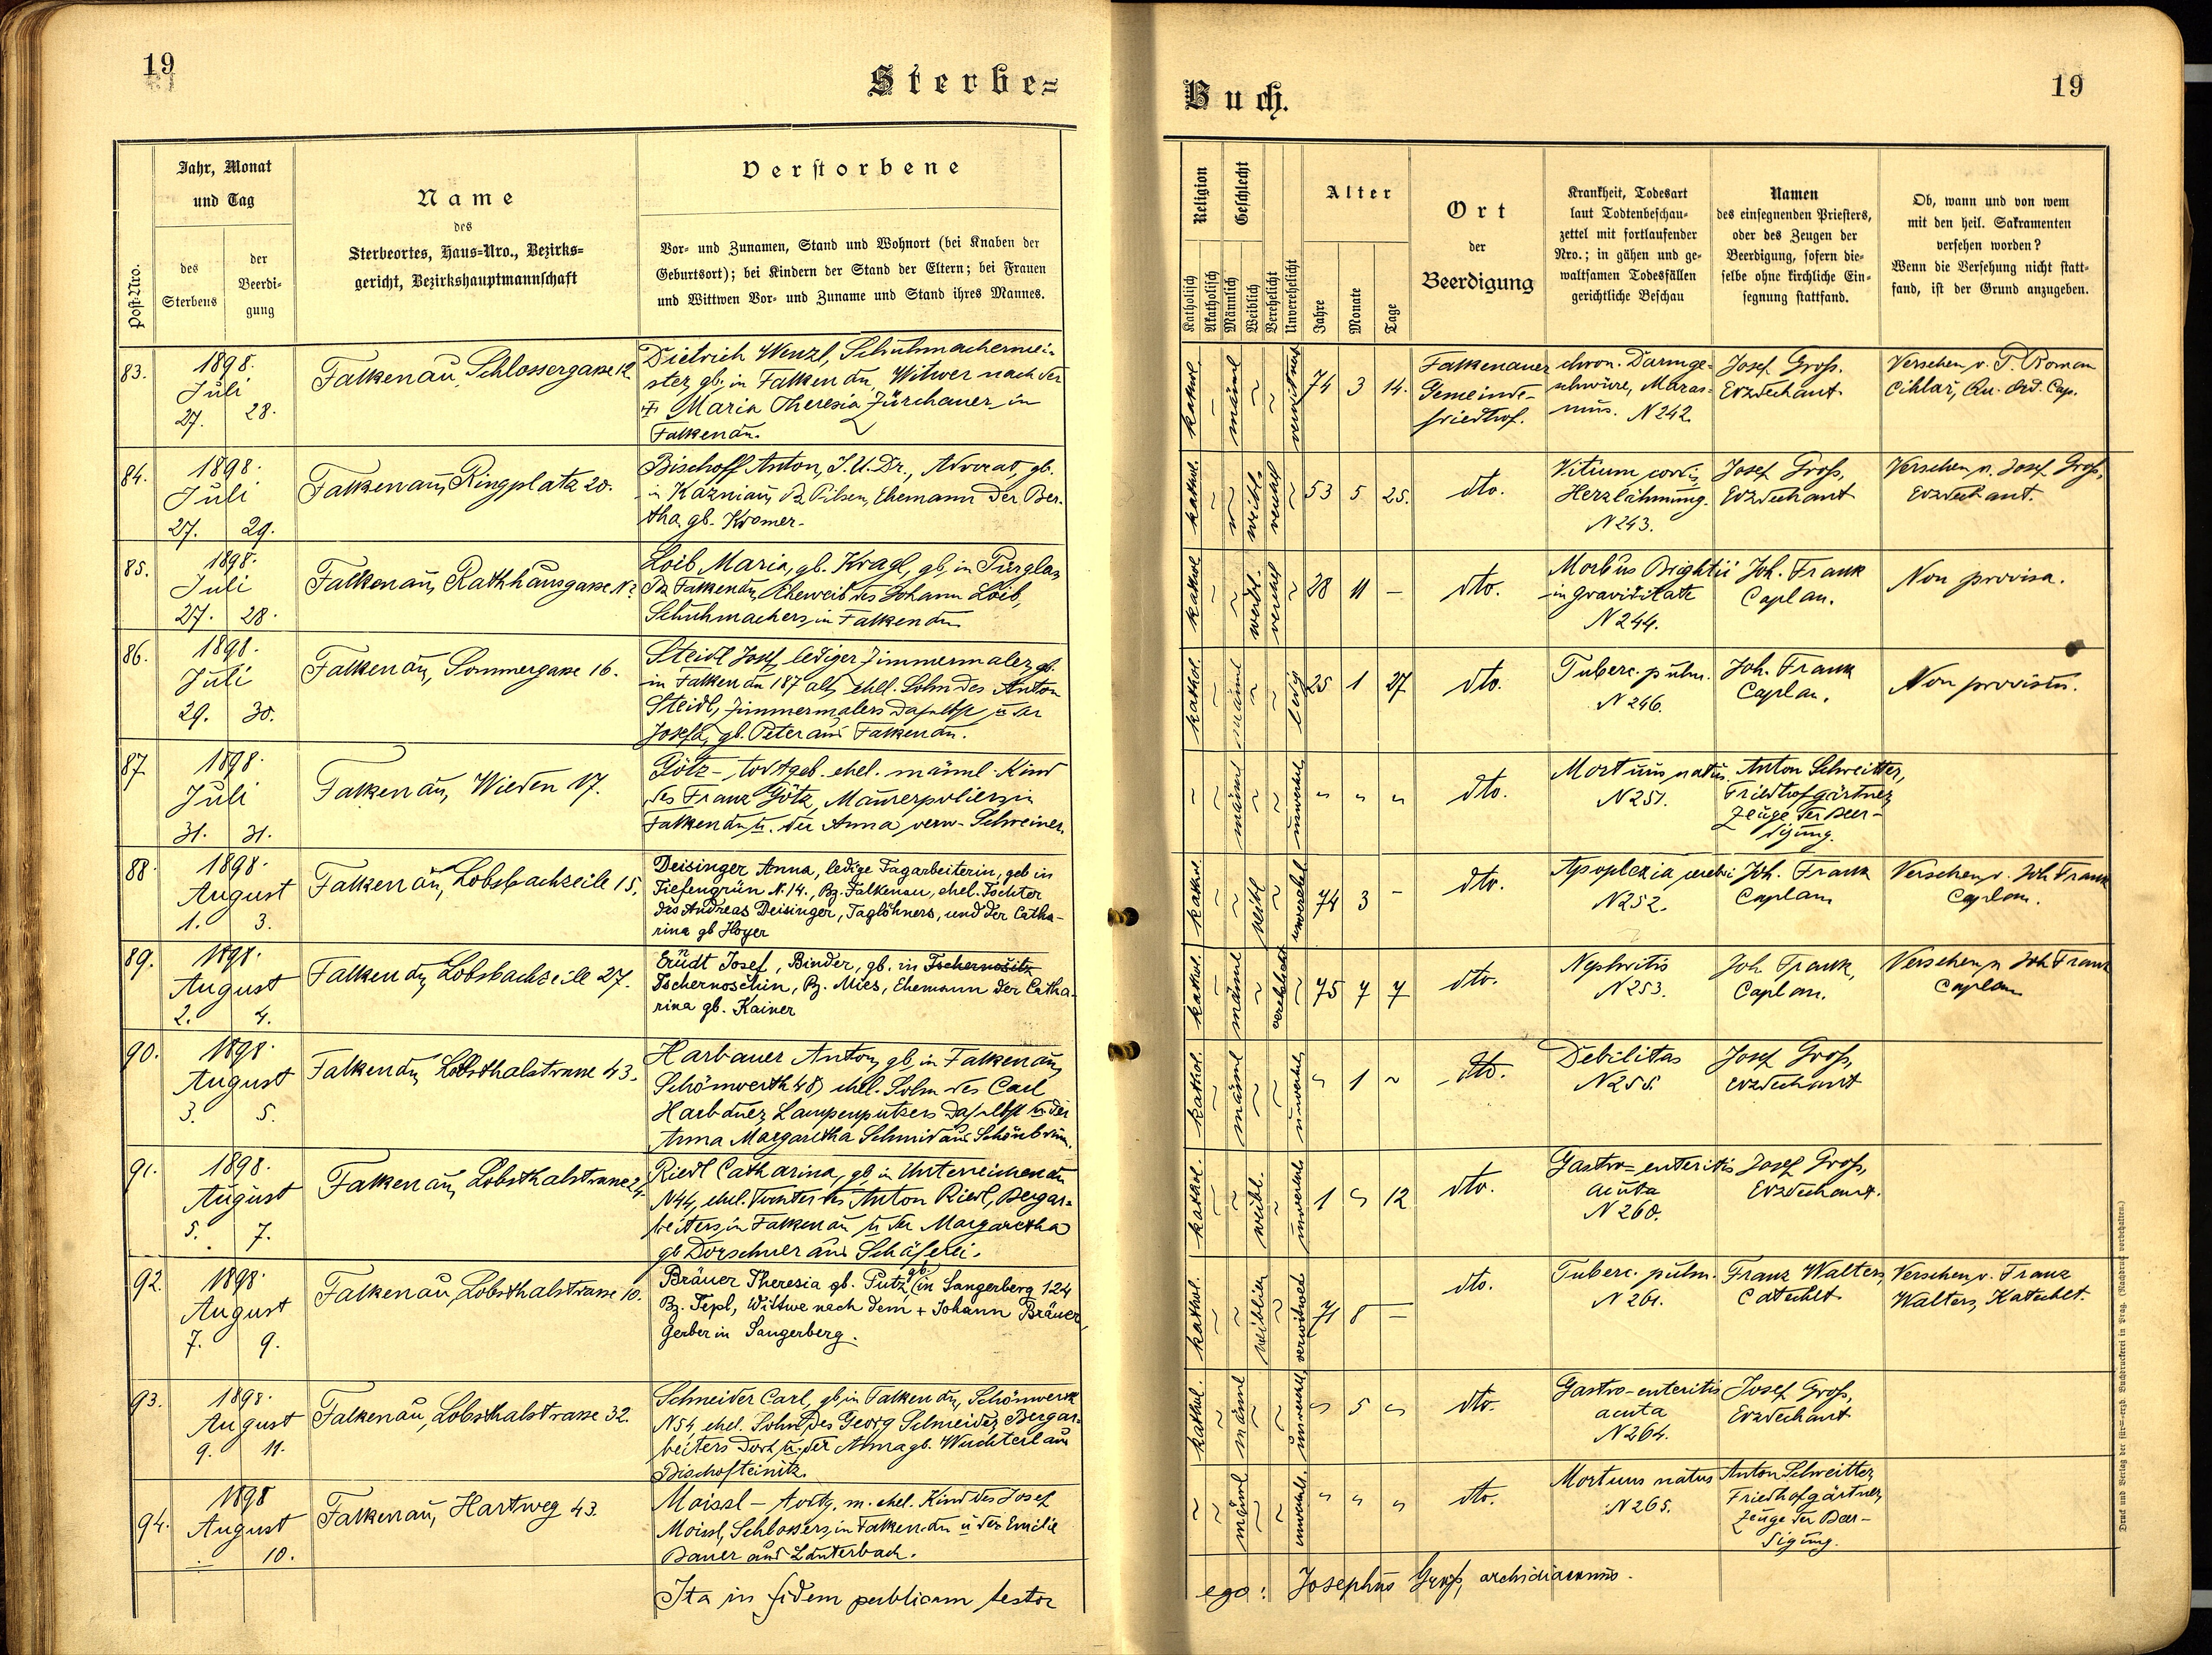 19
Sterbe=
Post-Nro.
Jahr, Monat
und Tag
des
Sterbens
der
Beerdi=
gung
Name
des
Sterbeortes, Haus=Nro., Bezirks=
gericht, Bezirkshauptmannschaft
Verstorbene
Vor= und Zunamen, Stand und Wohnort (bei Knaben der
Geburtsort); bei Kindern der Stand der Eltern; bei Frauen
und Wittwen Vor= und Zuname und Stand ihres Mannes.
83.
1898.
Juli
27. 28.
Falkenau, Schlossergasse 12
Dietrich Wenzl, Schuhmachermei-
ster, gb. in Falkenau, Witwer nach der
† Maria Theresia Zürchauer in
Falkenau.
84.
1898.
Juli
27. 29.
Falkenau, Ringplatz 20.
Bischoff Anton, J.U.Dr., Advocat, gb.
in Kaznian, Bz Pilsen, Ehemann der Ber-
tha gb. Kromer.
85.
1898.
Juli
27. 28.
Falkenau, Rathhausgasse N
Loib Maria, gb. Kragl, gb. in Pürglas
Bz Falkenau, Eheweib des Johann Loib,
Schuhmachers in Falkenau
86.
1898.
Juli
29. 30.
Falkenau, Sommergasse 16.
Steidl Josef, lediger Zimmermaler, gb.
in Falkenau 187 als ehel. Sohn des Anton
Steidl, Zimmermalers daselbst u der
Josefa, gb. Peter aus Falkenau.
87
1898.
Juli
31. 31.
Falkenau, Wieden 17.
Götz - todtgeb. ehel. männl. Kind
des Franz Götz, Maurerpoliers in
Falkenau u. der Anna verw. Schreiner.
88.
1898.
August
1. 3.
Falkenau, Lobsbachzeile 15.
Deisinger Anna, ledige Tagarbeiterin, geb in
Tiefengrün N. 14., Bz. Falkenau, ehel. Tochter
des Andreas Deisinger, Taglöhners, und der Catha-
rina gb Hoyer
89.
1898.
August
2. 4.
Falkenau, Lobsbachzeile 27.
Erüdt Josef, Binder, gb. in Tschernositz
Tschernoschin, Bz. Mies, Ehemann der Catha-
rina gb. Kainer
90.
1898.
August
3. 5.
Falkenau, Lobsthalstrasse 43.
Harbauer Anton, gb. in Falkenau,
Schönwerth 48, ehel. Sohn des Carl
Harbauer, Lampenputzers daselbst u. der
Anna Margaretha Schmid aus Schönbrunn.
91.
1898.
August
5. 7.
Falkenau, Lobsthalstrasse 24.
Riedl Catharina, gb. in Unterreichenau
N44, ehel. Tochter des Anton Riedl, Bergar-
beiters, in Falkenau u der Margaretha
gb Dorschner aus Schäferei.
92.
1898.
August
7. 9.
Falkenau, Lobsthalstrasse 10.
Bräuer Theresia gb. Putz, gb. in Sangerberg 124
Bz. Tepl, Wittwe nach dem + Johann Bräuer,
Gerber in Sangerberg.
93.
1898.
August
9. 11.
Falkenau, Lobsthalstrasse 32.
Schneider Carl, gb, in Falkenau, Schönwerth
N54, ehel. Sohn des Georg Schneider, Bergar-
beiters dort u. der Anna gb. Wuchterl aus
Bischofteinitz.
94.
1898
August
10.
Falkenau, Hartweg 43.
Moissl - todtg. m. ehel. Kind des Josef
Moissl, Schlossers, in Falkenau u der Emilie
Bauer aus Lauterbach.
Ita in fidem publicam testor
Buch.
19
Religion
Katholisch
Akatholisch
Geschlecht
Männlich
Weiblich
Verehelicht
Unverehelicht
Alter
Jahre
Monate
Tage
Ort
der
Beerdigung
Krankheit, Todesart
laut Todtenbeschau=
zettel mit fortlaufender
Nro.; in gähen und ge=
waltsamen Todesfällen
gerichtliche Beschau
Namen
des einsegnenden Priesters,
oder des Zeugen der
Beerdigung, sofern die=
selbe ohne kirchliche Ein=
segnung stattfand.
Ob, wann und von wem
mit den heil. Sakramenten
versehen worden?
Wenn die Versehung nicht statt=
fand, ist der Grund anzugeben.
kathol. männl verwitwet 74 3 14.
Falkenauer
Gemeinde-
friedhof.
chron. Darmge-
schwüre, Maras-
mus. N 242.
Josef Gross.
Erzdechant
Versehen v. P. Roman
Cihlař, Qu. Ord. Cap.
kathol. weibl. verehel 53 5 25.
dto.
Vitium cordis
Herzlähmung.
N 243.
Josef Gross,
Erzdechant
Versehen v. Josef Gross,
Erzdechant.
kathol weibl. verehel 28 11 —
dto.
Morbus Brightii
in graviditate
N 244.
Joh. Frank
Caplan.
Non provisa.
kathol. männl ledig 25 1 27
dto.
Tuberc. pulm.
N 246.
Joh. Frank
Caplan.
Non provisus.
männl unverehel
dto.
Mortuus natus.
N 251.
Anton Schreitter,
Friedhofgärtner,
Zeuge der Beer-
digung.
kathol. weibl unverehel 74 3 -
dto.
Apoplexia cerebri
N 252.
Joh. Frank
Caplan
Versehen v. Joh Frank
Caplan.
kathol. männl verehelicht 75 7 7
dto.
Nephritis
N 253.
Joh Frank,
Caplan.
Versehen v Joh Frank
Caplan
kathol. männl unverehel. 1
dto.
Debilitas
N 255.
Josef Gross,
Erzdechant
kathol. weibl. unverehel. 1 12
dto.
Gastro=enteritis
acuta
N 260.
Josef Gross,
Erzdechant.
kathol. weiblich verwitwed 71 8 —
dto.
Tuberc. pulm.
N 261.
Franz Walters,
Catechet
Versehen v. Franz
Walters, Katechet.
kathol. männl unverehel. 5
dto.
Gastro-enteritis
acuta
N 264.
Josef Gross,
Erzdechant
männl unverehel.
dto.
Mortuus natus
N 265.
Anton Schreitter,
Friedhofgärtner,
Zeuge der Beer-
digung.
ego: Josephus Gross, archidiaconus.
Druck und Verlag der für=erzb. Buchdruckerei in Prag. (Nachdruck vorbehalten.)